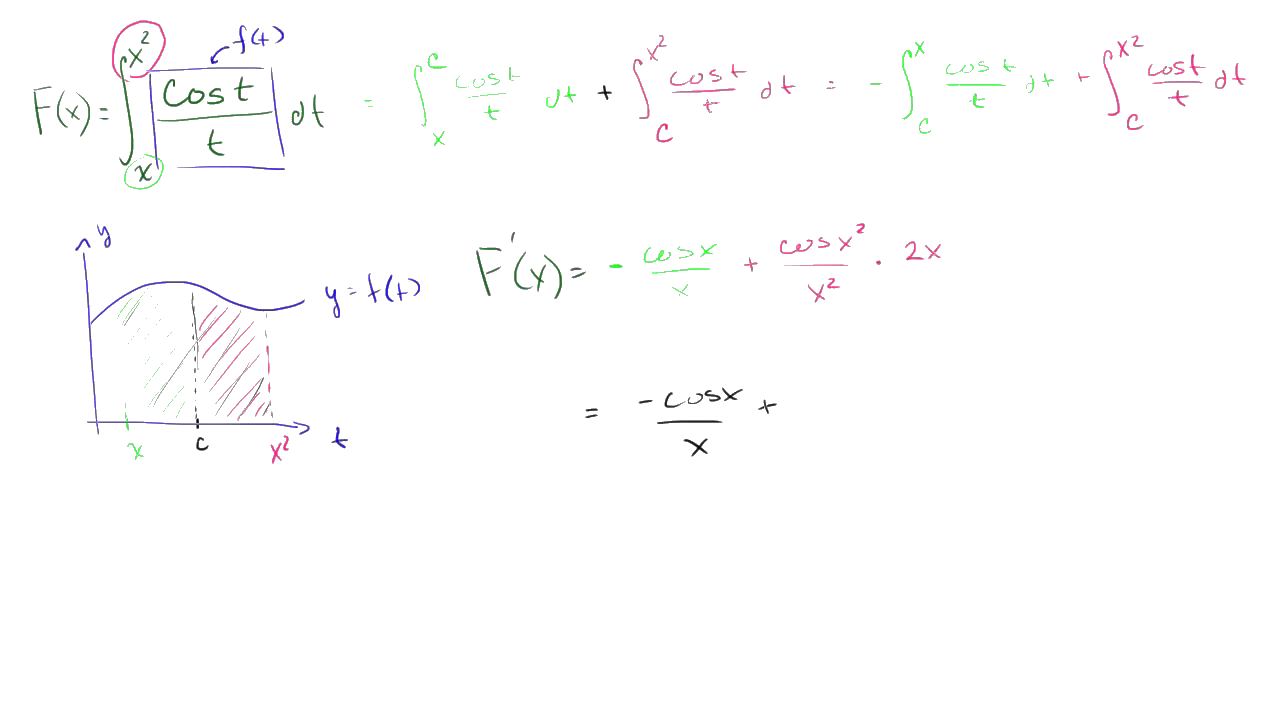 F(x) = ∫_x^{x²} cos t / t dt = ∫_x^c cos t / t dt + ∫_c^{x²} cos t / t dt = - ∫_c^x cos t / t dt + ∫_c^{x²} cos t / t dt
f(t)
y
y = f(t)
x c x² t
F'(x) = - cos x / x + cos x² / x² · 2x
= -cos x / x +